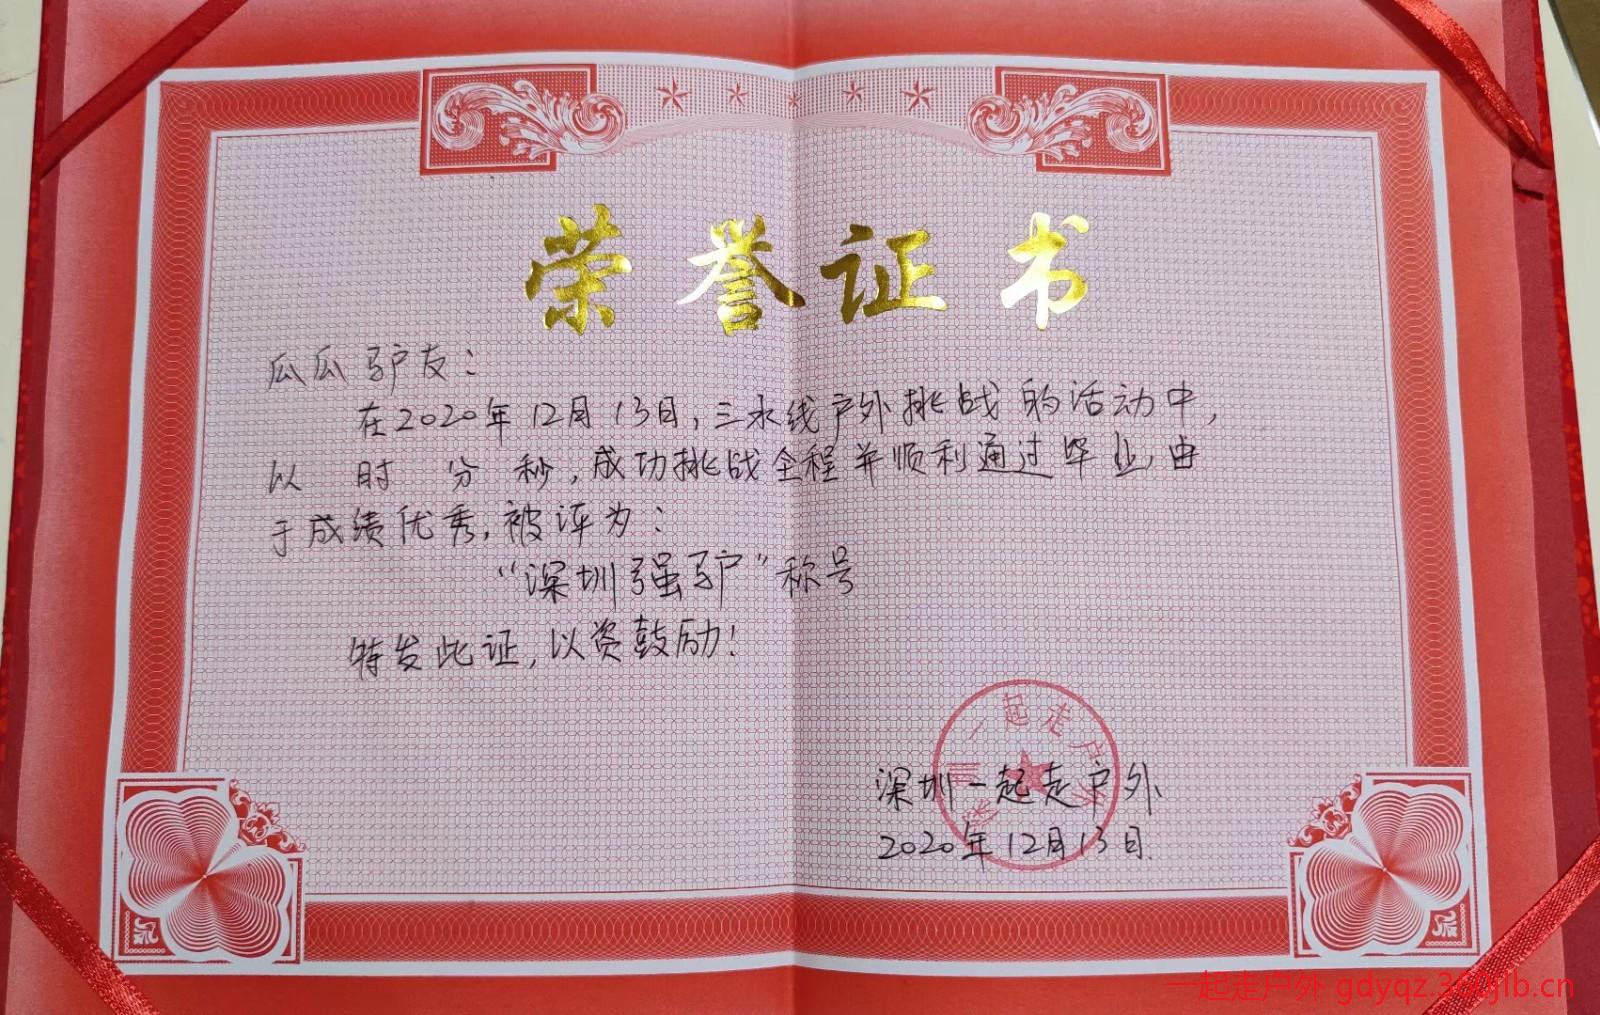 荣誉证书
瓜瓜驴友：
在2020年12月13日，三水线户外挑战的活动中，
以 时 分 秒，成功挑战全程并顺利通过毕业，由
于成绩优秀，被评为：
“深圳强驴”称号
特发此证，以资鼓励！
一起走户外
深圳一起走户外
2020年12月13日
一起走户外 gdyqz.